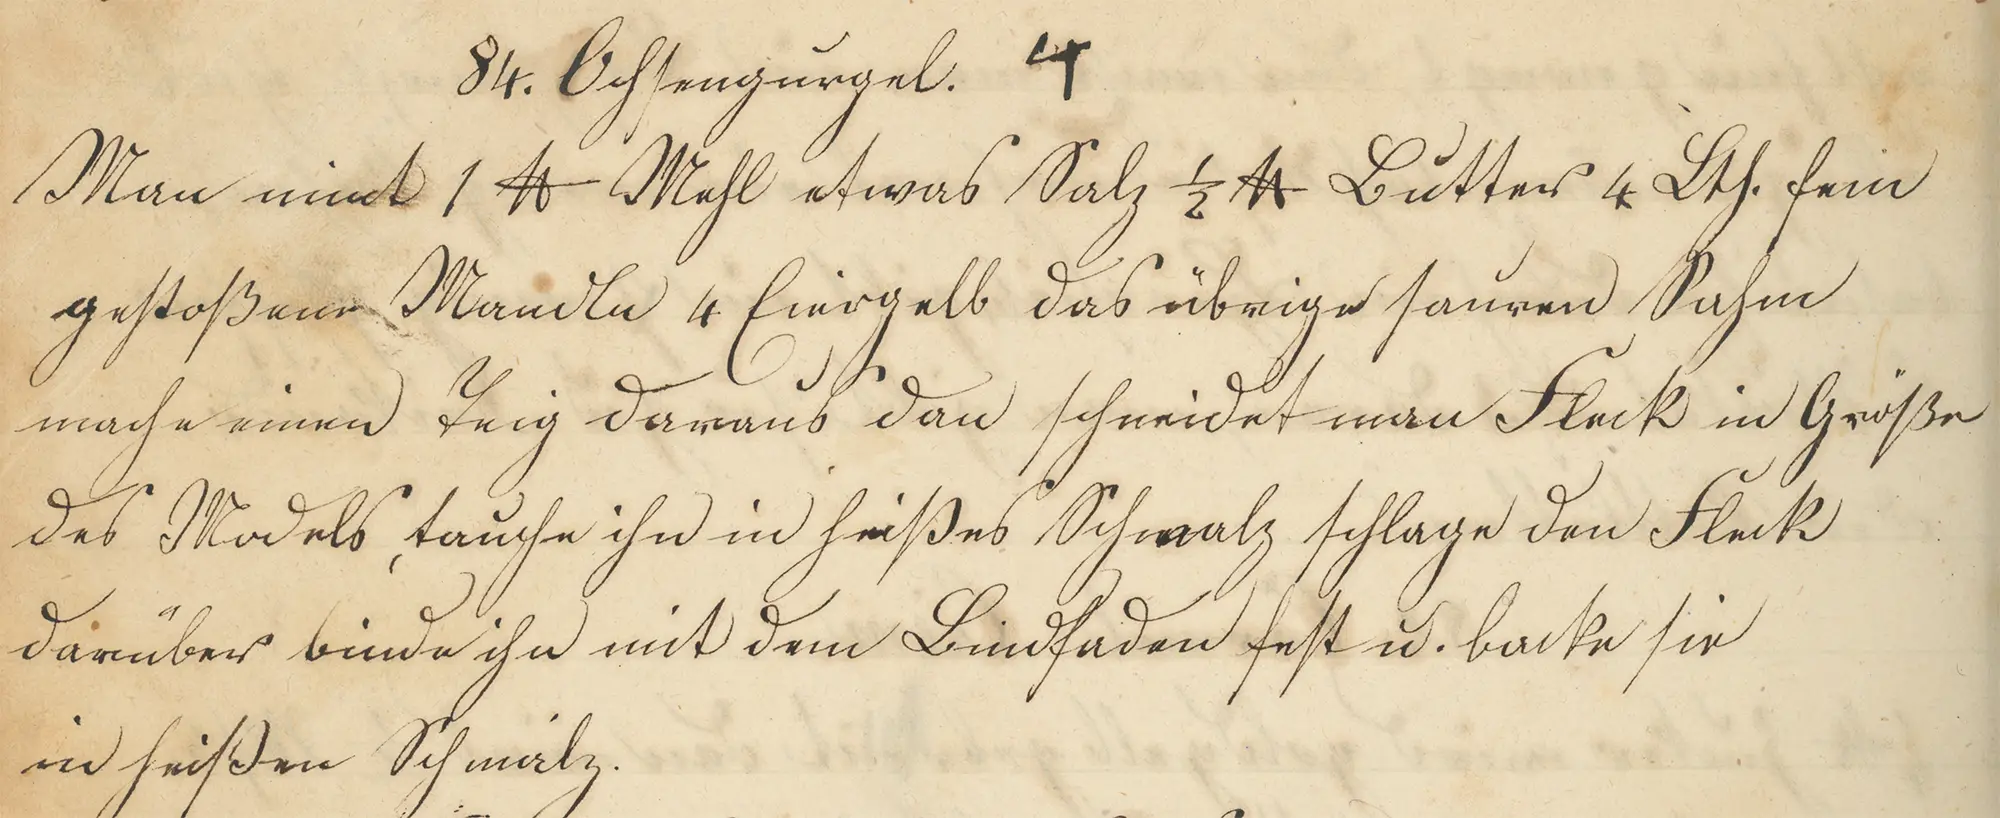 84. Ochsengurgel. 4
Man nimt 1 ℔ Mehl etwas Salz ½ ℔ Butter 4 Lth. fein
gestoßene Mandln 4 Eiergelb das übrige sauren Rahm
mache einen Teig daraus dan schneidet man Fleck in Größe
des Models, tauche ihn in heißes Schmalz schlage den Fleck
darüber binde ihn mit dem Bindfaden fest u. backe sie
in heißen Schmalz.